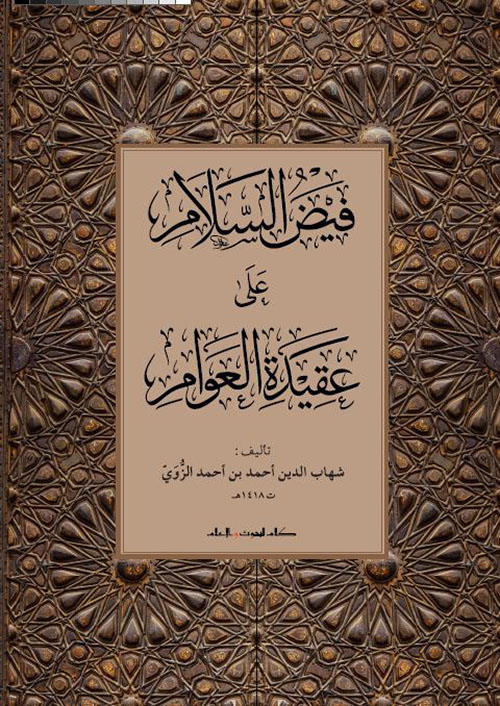 فَيْضُ السَّلَامِ
عَلَى
عَقِيدَةِ الْعَوَامِ
تأليف :
شهاب الدين أحمد بن أحمد الزُّوَيّ
ت ١٤١٨هـ
كلام للبحوث والإعلام